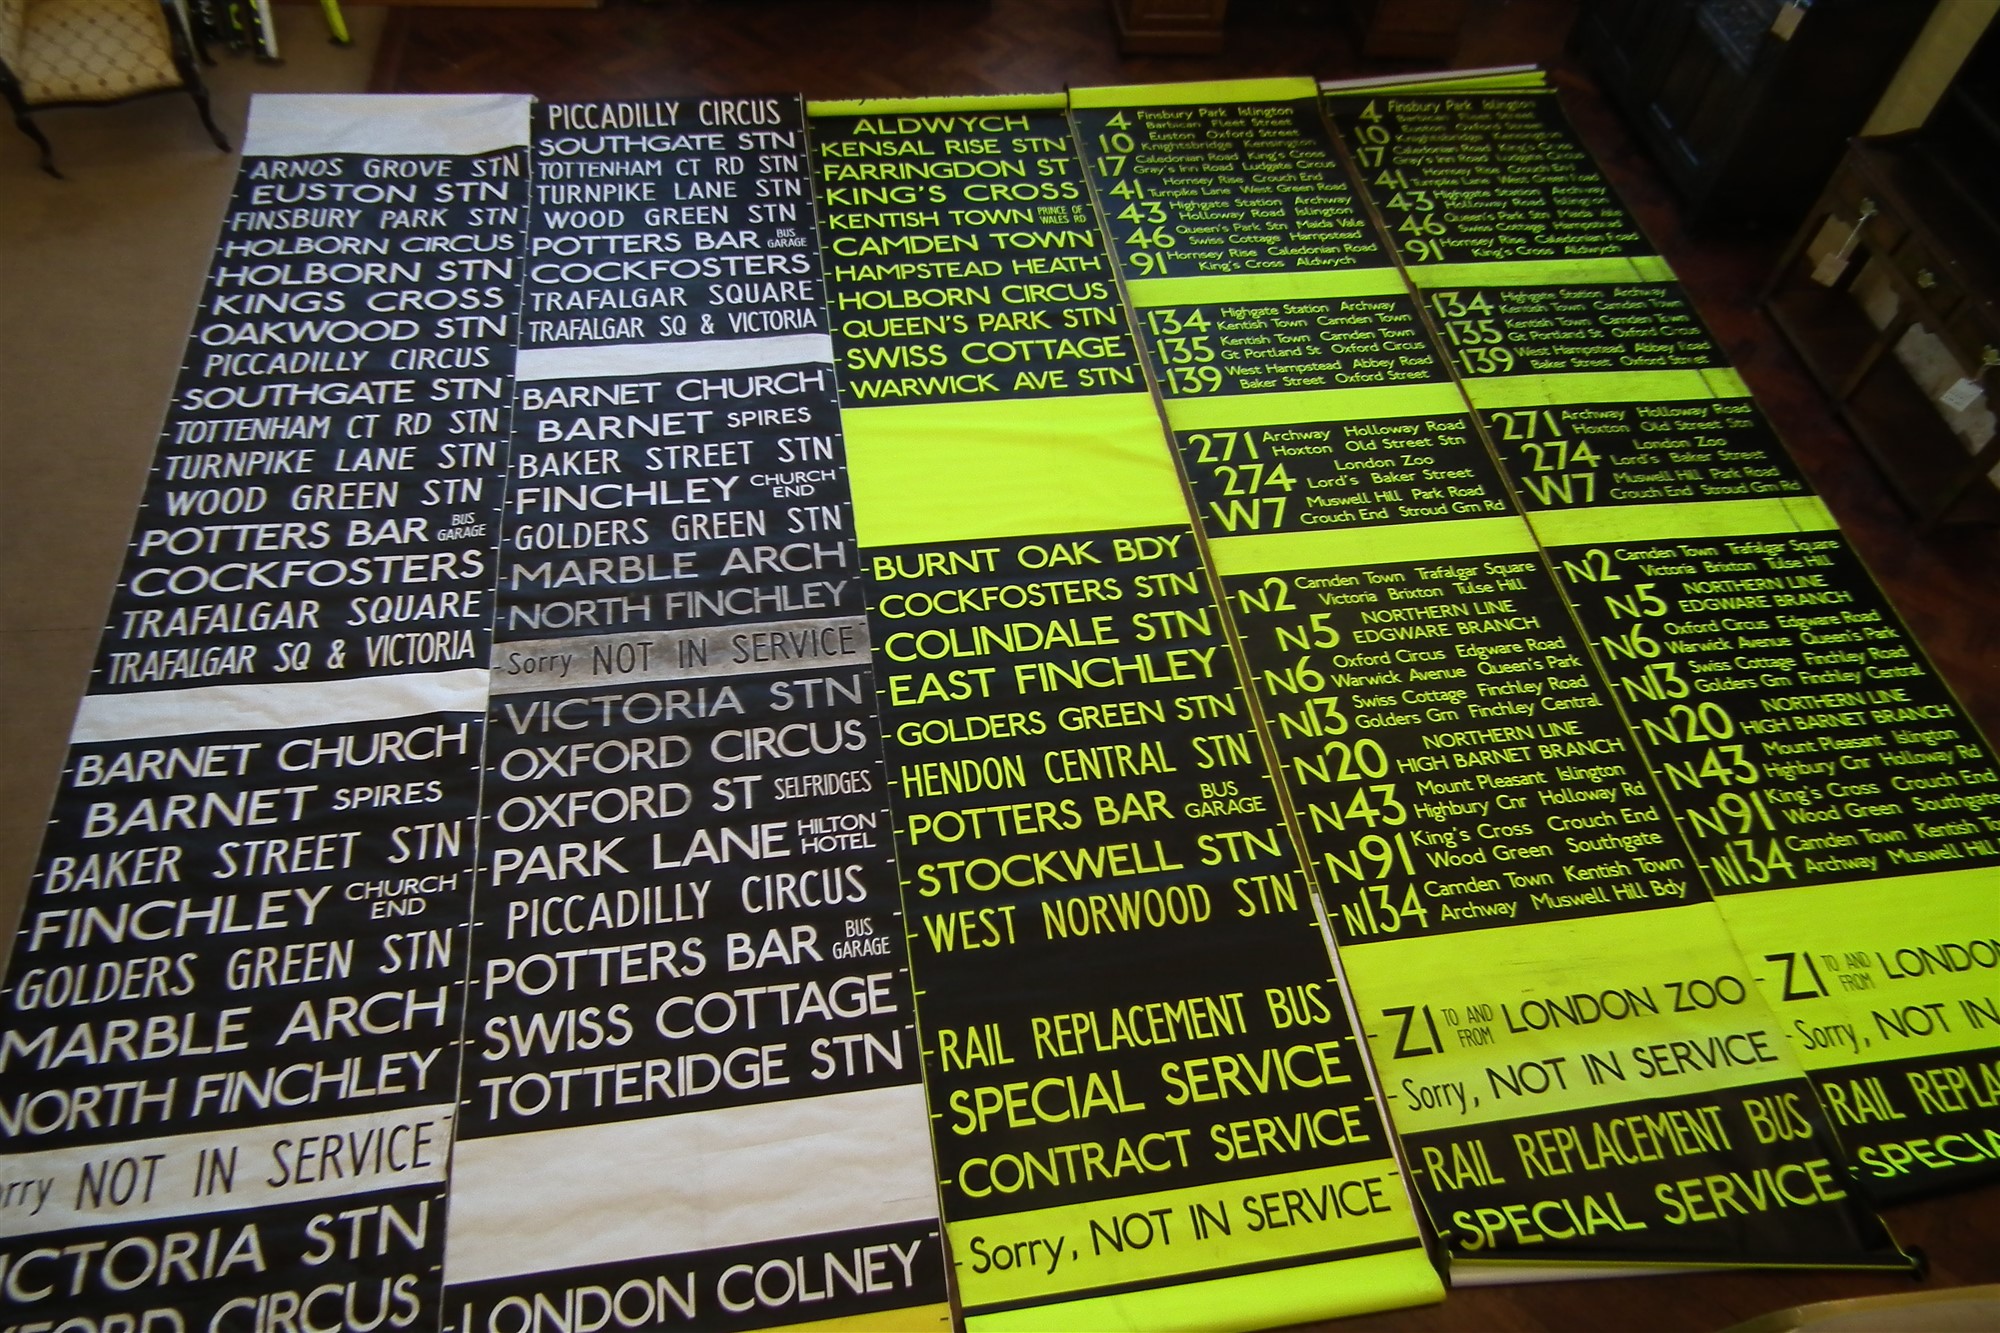 ARNOS GROVE STN
EUSTON STN
FINSBURY PARK STN
HOLBORN CIRCUS
HOLBORN STN
KINGS CROSS
OAKWOOD STN
PICCADILLY CIRCUS
SOUTHGATE STN
TOTTENHAM CT RD STN
TURNPIKE LANE STN
WOOD GREEN STN
POTTERS BAR BUS GARAGE
COCKFOSTERS
TRAFALGAR SQUARE
TRAFALGAR SQ & VICTORIA
BARNET CHURCH
BARNET SPIRES
BAKER STREET STN
FINCHLEY CHURCH END
GOLDERS GREEN STN
MARBLE ARCH
NORTH FINCHLEY
rry NOT IN SERVICE
ICTORIA STN
FORD CIRCUS
PICCADILLY CIRCUS
SOUTHGATE STN
TOTTENHAM CT RD STN
TURNPIKE LANE STN
WOOD GREEN STN
POTTERS BAR BUS GARAGE
COCKFOSTERS
TRAFALGAR SQUARE
TRAFALGAR SQ & VICTORIA
BARNET CHURCH
BARNET SPIRES
BAKER STREET STN
FINCHLEY CHURCH END
GOLDERS GREEN STN
MARBLE ARCH
NORTH FINCHLEY
Sorry NOT IN SERVICE
VICTORIA STN
OXFORD CIRCUS
OXFORD ST SELFRIDGES
PARK LANE HILTON HOTEL
PICCADILLY CIRCUS
POTTERS BAR BUS GARAGE
SWISS COTTAGE
TOTTERIDGE STN
LONDON COLNEY
ALDWYCH
KENSAL RISE STN
FARRINGDON ST
KING'S CROSS
KENTISH TOWN PRINCE OF WALES RD
CAMDEN TOWN
HAMPSTEAD HEATH
HOLBORN CIRCUS
QUEEN'S PARK STN
SWISS COTTAGE
WARWICK AVE STN
BURNT OAK BDY
COCKFOSTERS STN
COLINDALE STN
EAST FINCHLEY
GOLDERS GREEN STN
HENDON CENTRAL STN
POTTERS BAR BUS GARAGE
STOCKWELL STN
WEST NORWOOD STN
RAIL REPLACEMENT BUS
SPECIAL SERVICE
CONTRACT SERVICE
Sorry, NOT IN SERVICE
4 Finsbury Park Islington
Barbican Fleet Street
10 Euston Oxford Street
Knightsbridge Kensington
17 Caledonian Road King's Cross
Gray's Inn Road Ludgate Circus
41 Hornsey Rise Crouch End
Turnpike Lane West Green Road
43 Highgate Station Archway
Holloway Road Islington
46 Queen's Park Stn Maida Vale
Swiss Cottage Hampstead
91 Hornsey Rise Caledonian Road
King's Cross Aldwych
134 Highgate Station Archway
Kentish Town Camden Town
135 Kentish Town Camden Town
Gt Portland St Oxford Circus
139 West Hampstead Abbey Road
Baker Street Oxford Street
271 Archway Holloway Road
Hoxton Old Street Stn
274 London Zoo
Lord's Baker Street
W7 Muswell Hill Park Road
Crouch End Stroud Grn Rd
N2 Camden Town Trafalgar Square
Victoria Brixton Tulse Hill
N5 NORTHERN LINE
EDGWARE BRANCH
N6 Oxford Circus Edgware Road
Warwick Avenue Queen's Park
N13 Swiss Cottage Finchley Road
Golders Grn Finchley Central
N20 NORTHERN LINE
HIGH BARNET BRANCH
N43 Mount Pleasant Islington
Highbury Cnr Holloway Rd
N91 King's Cross Crouch End
Wood Green Southgate
N134 Camden Town Kentish Town
Archway Muswell Hill Bdy
Z1 TO AND FROM LONDON ZOO
Sorry, NOT IN SERVICE
RAIL REPLACEMENT BUS
SPECIAL SERVICE
4 Finsbury Park Islington
Barbican Fleet Street
10 Euston Oxford Street
Knightsbridge Kensington
17 Caledonian Road King's Cross
Gray's Inn Road Ludgate Circus
41 Hornsey Rise Crouch End
Turnpike Lane West Green Road
43 Highgate Station Archway
Holloway Road Islington
46 Queen's Park Stn Maida Vale
Swiss Cottage Hampstead
91 Hornsey Rise Caledonian Road
King's Cross Aldwych
134 Highgate Station Archway
Kentish Town Camden Town
135 Kentish Town Camden Town
Gt Portland St Oxford Circus
139 West Hampstead Abbey Road
Baker Street Oxford Street
271 Archway Holloway Road
Hoxton Old Street Stn
274 London Zoo
Lord's Baker Street
W7 Muswell Hill Park Road
Crouch End Stroud Grn Rd
N2 Camden Town Trafalgar Square
Victoria Brixton Tulse Hill
N5 NORTHERN LINE
EDGWARE BRANCH
N6 Oxford Circus Edgware Road
Warwick Avenue Queen's Park
N13 Swiss Cottage Finchley Road
Golders Grn Finchley Central
N20 NORTHERN LINE
HIGH BARNET BRANCH
N43 Mount Pleasant Islington
Highbury Cnr Holloway Rd
N91 King's Cross Crouch End
Wood Green Southgate
N134 Camden Town Kentish To
Archway Muswell Hill
Z1 TO AND FROM LONDO
Sorry, NOT IN
RAIL REPLA
SPECIA